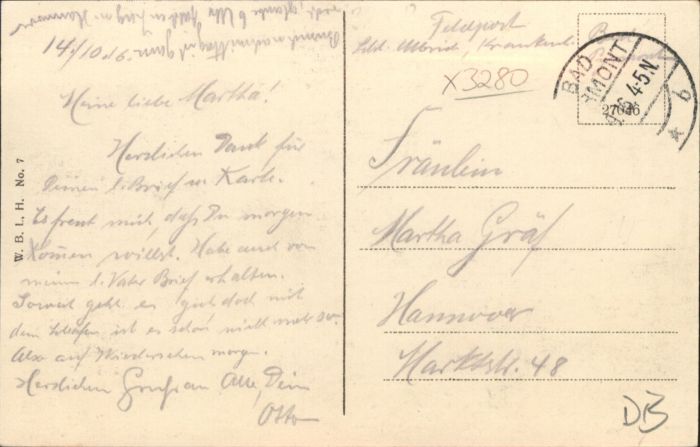 14./10.16.
Meine liebe Martha!
Herzlichen Dank für
Deinen l. Brief u. Karte.
Es freut mich, daß Du morgen
kommen willst. Habe auch von
meinem l. Vater Brief erhalten.
Soweit geht es gut doch mit
dem Schlafen ist es schon nicht mehr so.
Also auf Wiedersehen morgen.
Herzlichen Gruß an Alle, Dein
Otto
W. B. L. H. No. 7
Feldpost
X3280
BAD
PYRMONT
4-5N
* b
27046
Fräulein
Martha Gräf
Hannover
Marktstr. 48
DB